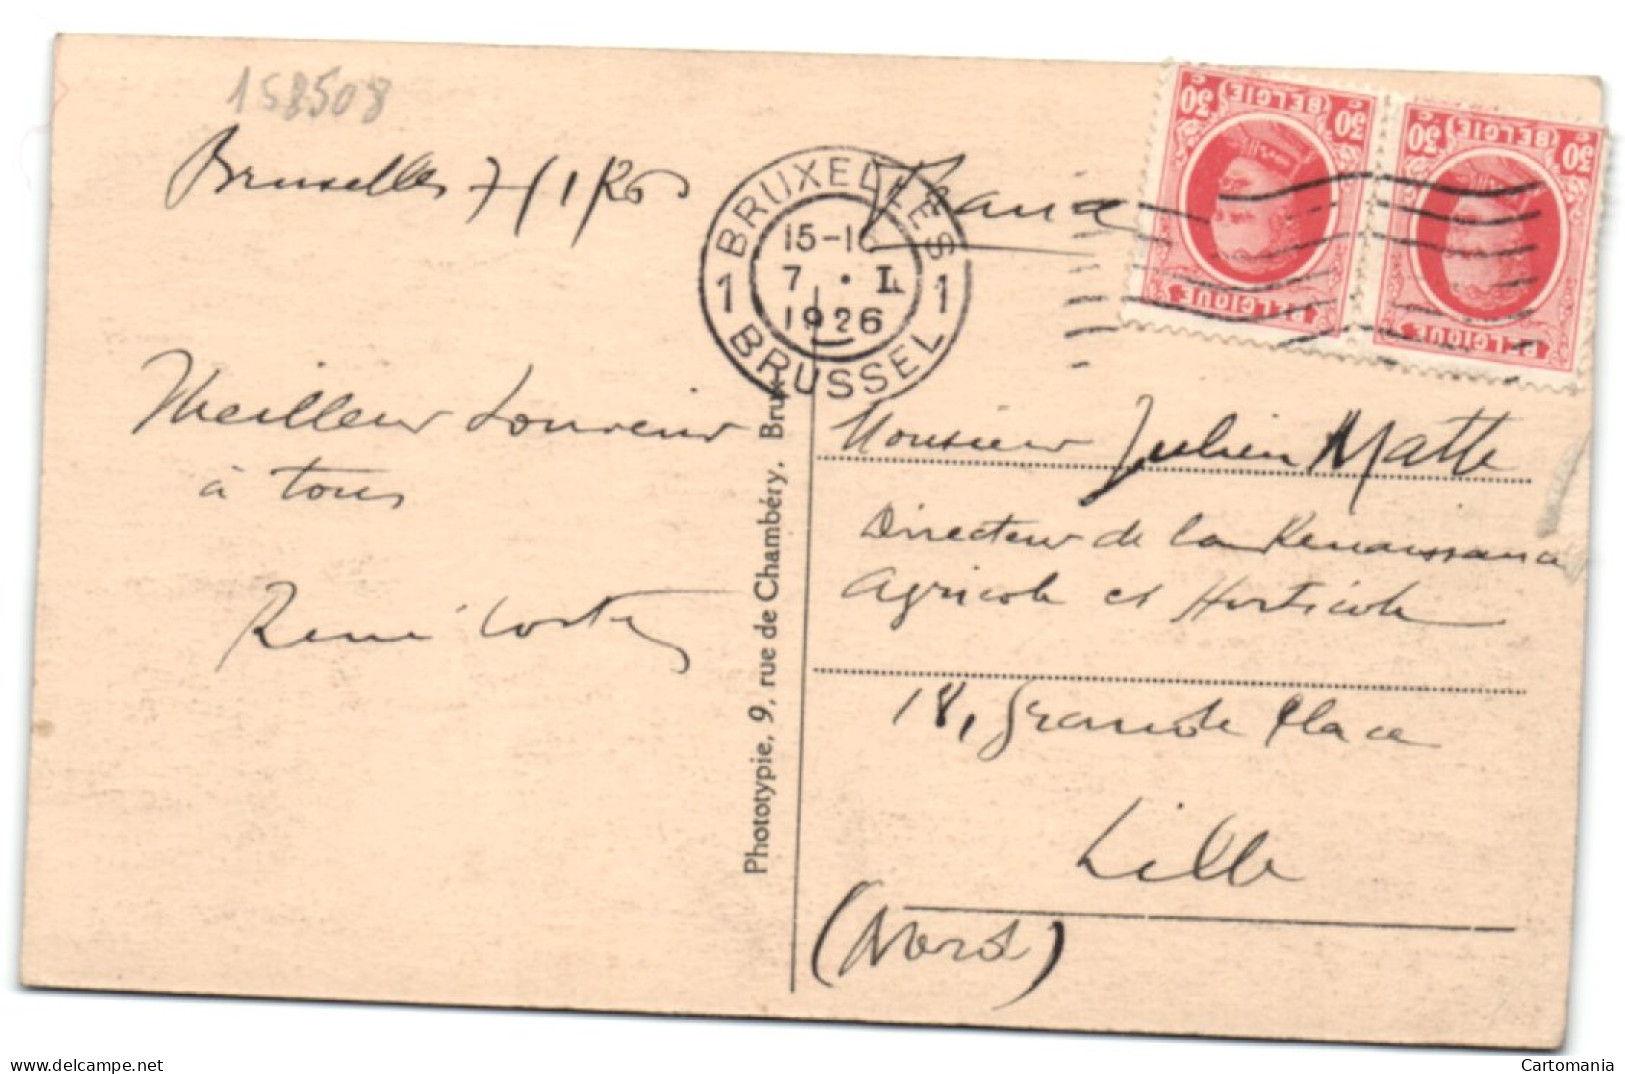 158508
Bruxelles 7/1/26
BRUXELLES
15-1
7 · I
1926
1 1
BRUSSEL
France
30 c BELGIË 30 c
BELGIQUE
30 c BELGIË 30 c
BELGIQUE
Meilleur Souvenir
à tous
René
Phototypie, 9, rue de Chambéry, Brux
Monsieur Julien Matte
Directeur de la Renaissance
Agricole et Horticole
18, Grande Place
Lille
(Nord)
delcampe.net
Cartomania